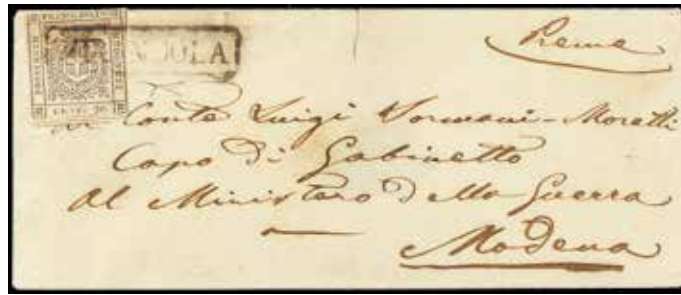 FRANCO BOLLO
Preme
Conte Luigi Sormani-Moretti
Capo di Gabinetto
Al Ministero della Guerra
Modena